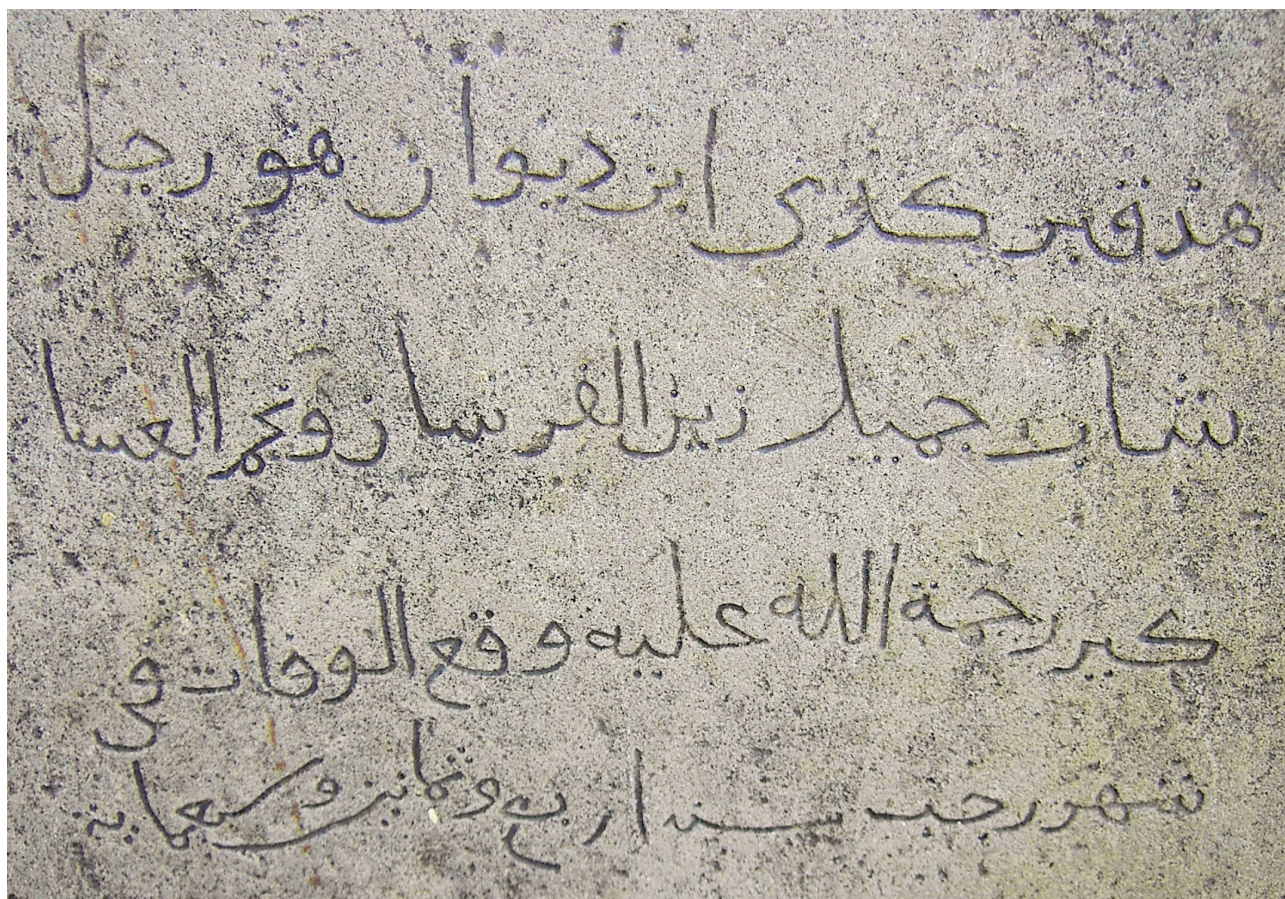 هذ قبر كدى ابن ديوان هو رجل
شاب جميل زين الفرسان وكم العسا
كير رحمة الله عليه وقع الوفات في
شهر رجب سنة اربع وثمانين وسبعماية